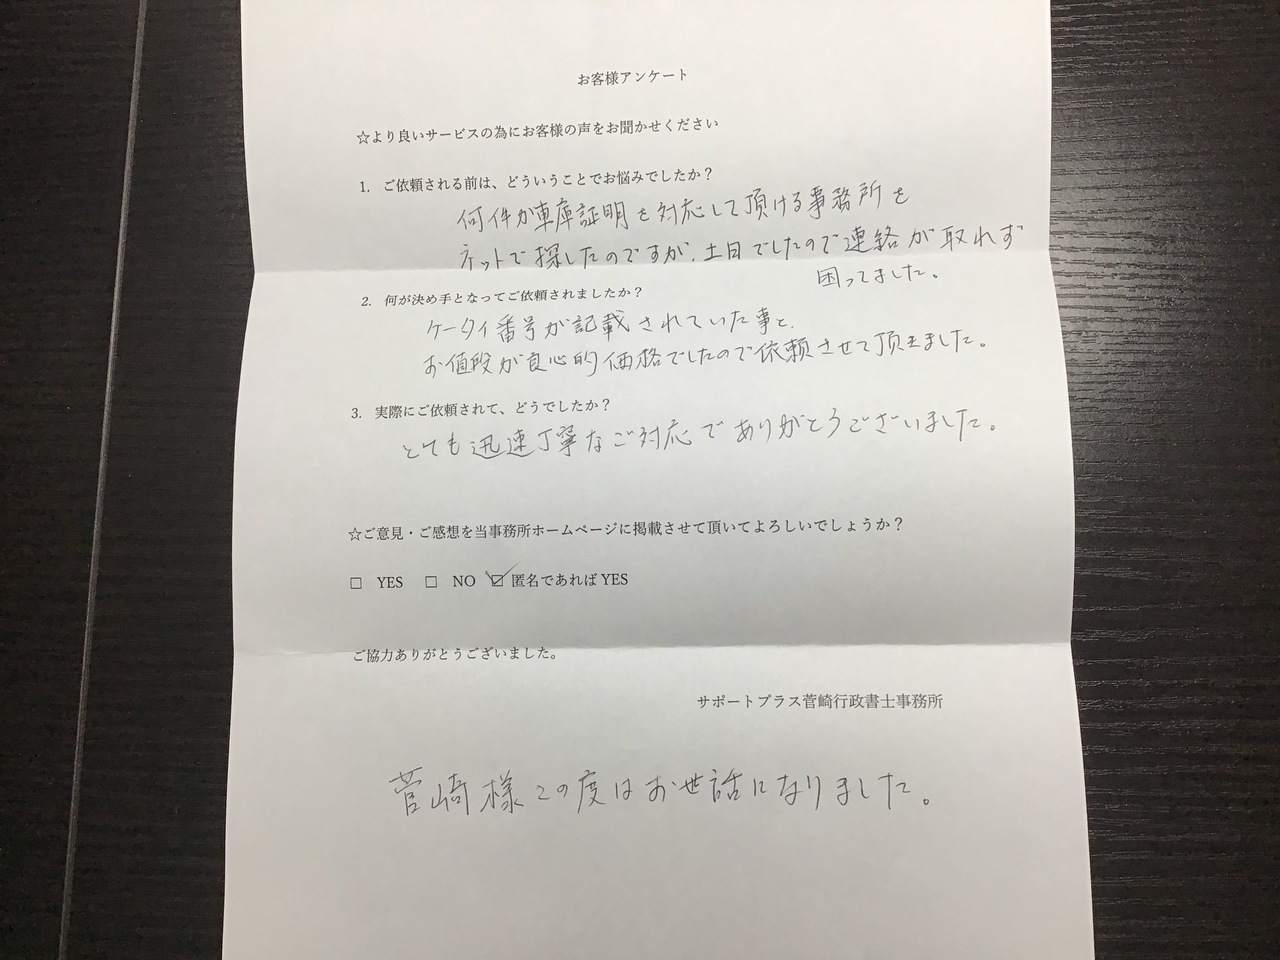 お客様アンケート
☆より良いサービスの為にお客様の声をお聞かせください
1. ご依頼される前は、どういうことでお悩みでしたか？
何件か車庫証明を対応して頂ける事務所を
ネットで探したのですが、土日でしたので連絡が取れず
困ってました。
2. 何が決め手となってご依頼されましたか？
ケータイ番号が記載されていた事と、
お値段が良心的価格でしたので依頼させて頂きました。
3. 実際にご依頼されて、どうでしたか？
とても迅速丁寧なご対応でありがとうございました。
☆ご意見・ご感想を当事務所ホームページに掲載させて頂いてよろしいでしょうか？
□ YES □ NO ☑ 匿名であれば YES
ご協力ありがとうございました。
サポートプラス菅崎行政書士事務所
菅崎様この度はお世話になりました。